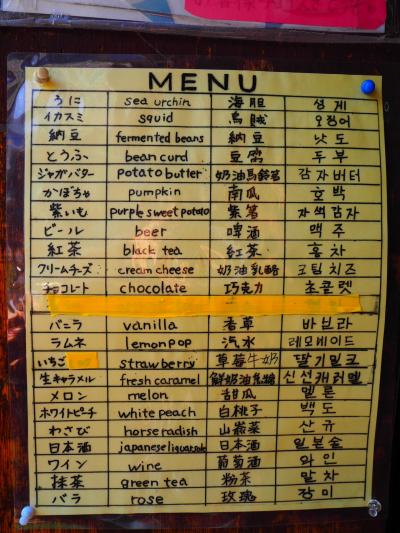 MENU
うに sea urchin 海胆 성게
イカスミ squid 烏賊 오징어
納豆 fermented beans 納豆 낫도
とうふ bean curd 豆腐 두부
ジャガバター potato butter 奶油馬鈴薯 감자버터
かぼちゃ pumpkin 南瓜 호박
紫いも purple sweet potato 紫薯 자색감자
ビール beer 啤酒 맥주
紅茶 black tea 紅茶 홍차
クリームチーズ cream cheese 奶油乳酪 크림치즈
チョコレート chocolate 巧克力 초콜렛
バニラ vanilla 香草 바닐라
ラムネ lemon pop 汽水 레모네이드
いちご strawberry 草莓牛奶 딸기밀크
生キャラメル fresh caramel 鮮奶油焦糖 신선캐러멜
メロン melon 甜瓜 멜론
ホワイトピーチ white peach 白桃子 백도
わさび horse radish 山葵菜
日本酒 japanese liquor sake 日本酒 일본술
ワイン wine 葡萄酒 와인
抹茶 green tea 粉茶 말차
バラ rose 玫瑰 장미